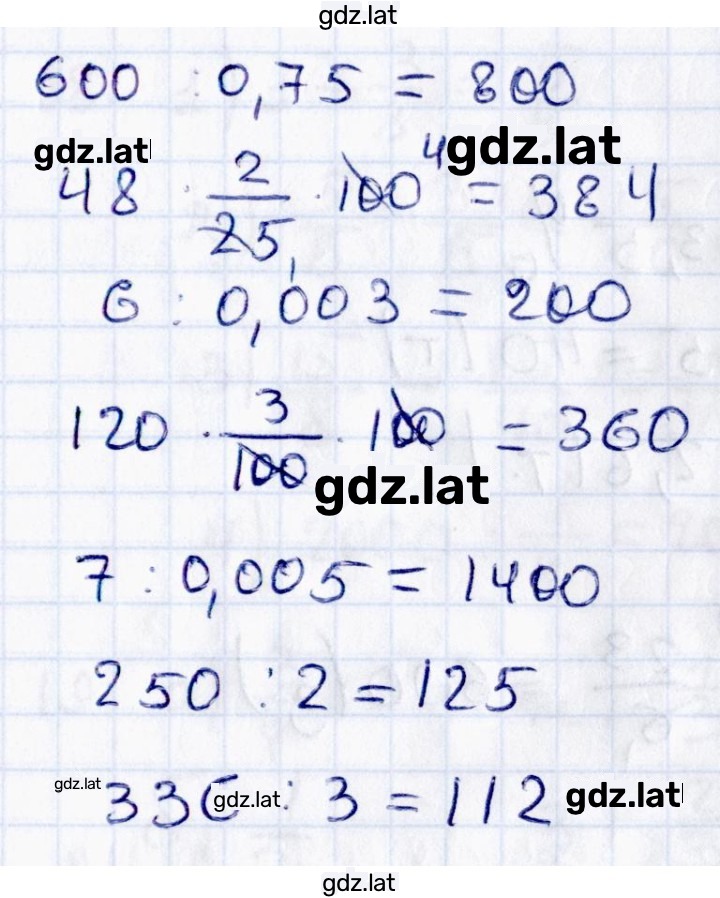 gdz.lat
600 : 0,75 = 800
gdz.lat
gdz.lat
48 · 2/25 · 100 4 = 384
6 : 0,003 = 200
120 · 3/100 · 100 = 360
gdz.lat
7 : 0,005 = 1400
250 : 2 = 125
gdz.lat
336 : 3 = 112
gdz.lat
gdz.lat
gdz.lat